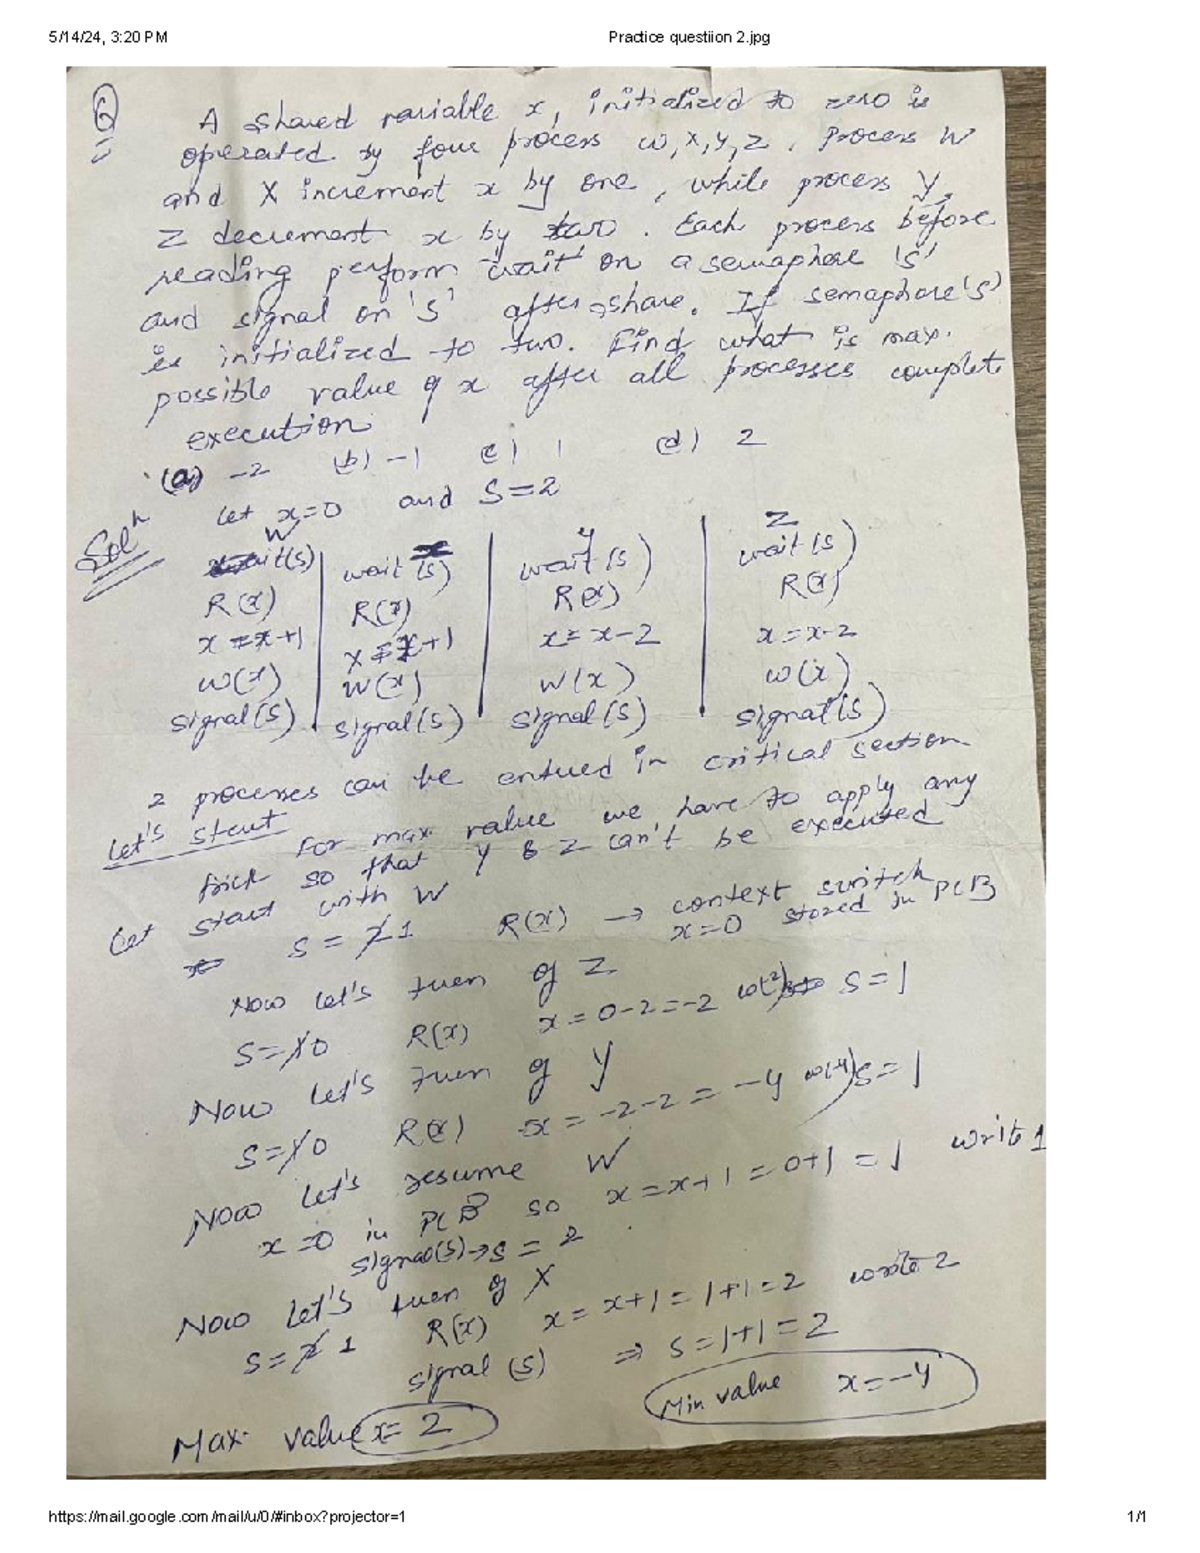 5/14/24, 3:20 PM Practice questiion 2.jpg
Q A shared variable x, initialized to zero is
operated by four process w, x, y, z. Process W
and X increment x by one, while process Y,
Z decrement x by two. Each process before
reading perform wait on a semaphore 's'
and signal on 's' after share. If semaphore (s)
is initialized to two. Find what is max.
possible value of x after all processes complete
execution
(a) -2 (b) -1 c) 1 (d) 2
Soln Let x=0 and S=2
W x y Z
wait(s) wait (s) wait (s) wait (s)
R(x) R(x) R(x) R(x)
x = x+1 x = x+1 x = x-2 x = x-2
w(x) w(x) W(x) w(x)
signal(s) signal(s) signal(s) signal(s)
2 processes can be entered in critical section
Let's start For max value we have to apply any
trick so that Y & Z can't be executed
Let start with W
S = 2 1 R(x) → context switch
x=0 stored in PCB
Now let's turn of Z
S=1 0 R(x) x = 0-2 = -2 S=1
Now Let's turn of Y
S=1 0 R(x) x = -2-2 = -4 w(-4) S=1
Now Let's resume W
x=0 in PCB so x = x+1 = 0+1 = 1 write 1
signal(s) → s = 2
Now Let's turn of X
S=2 1 R(x) x = x+1 = 1+1 = 2 write 2
signal (s) ⇒ S = 1+1 = 2
Max value x = 2 Min value x = -4
https://mail.google.com/mail/u/0/#inbox?projector=1 1/1